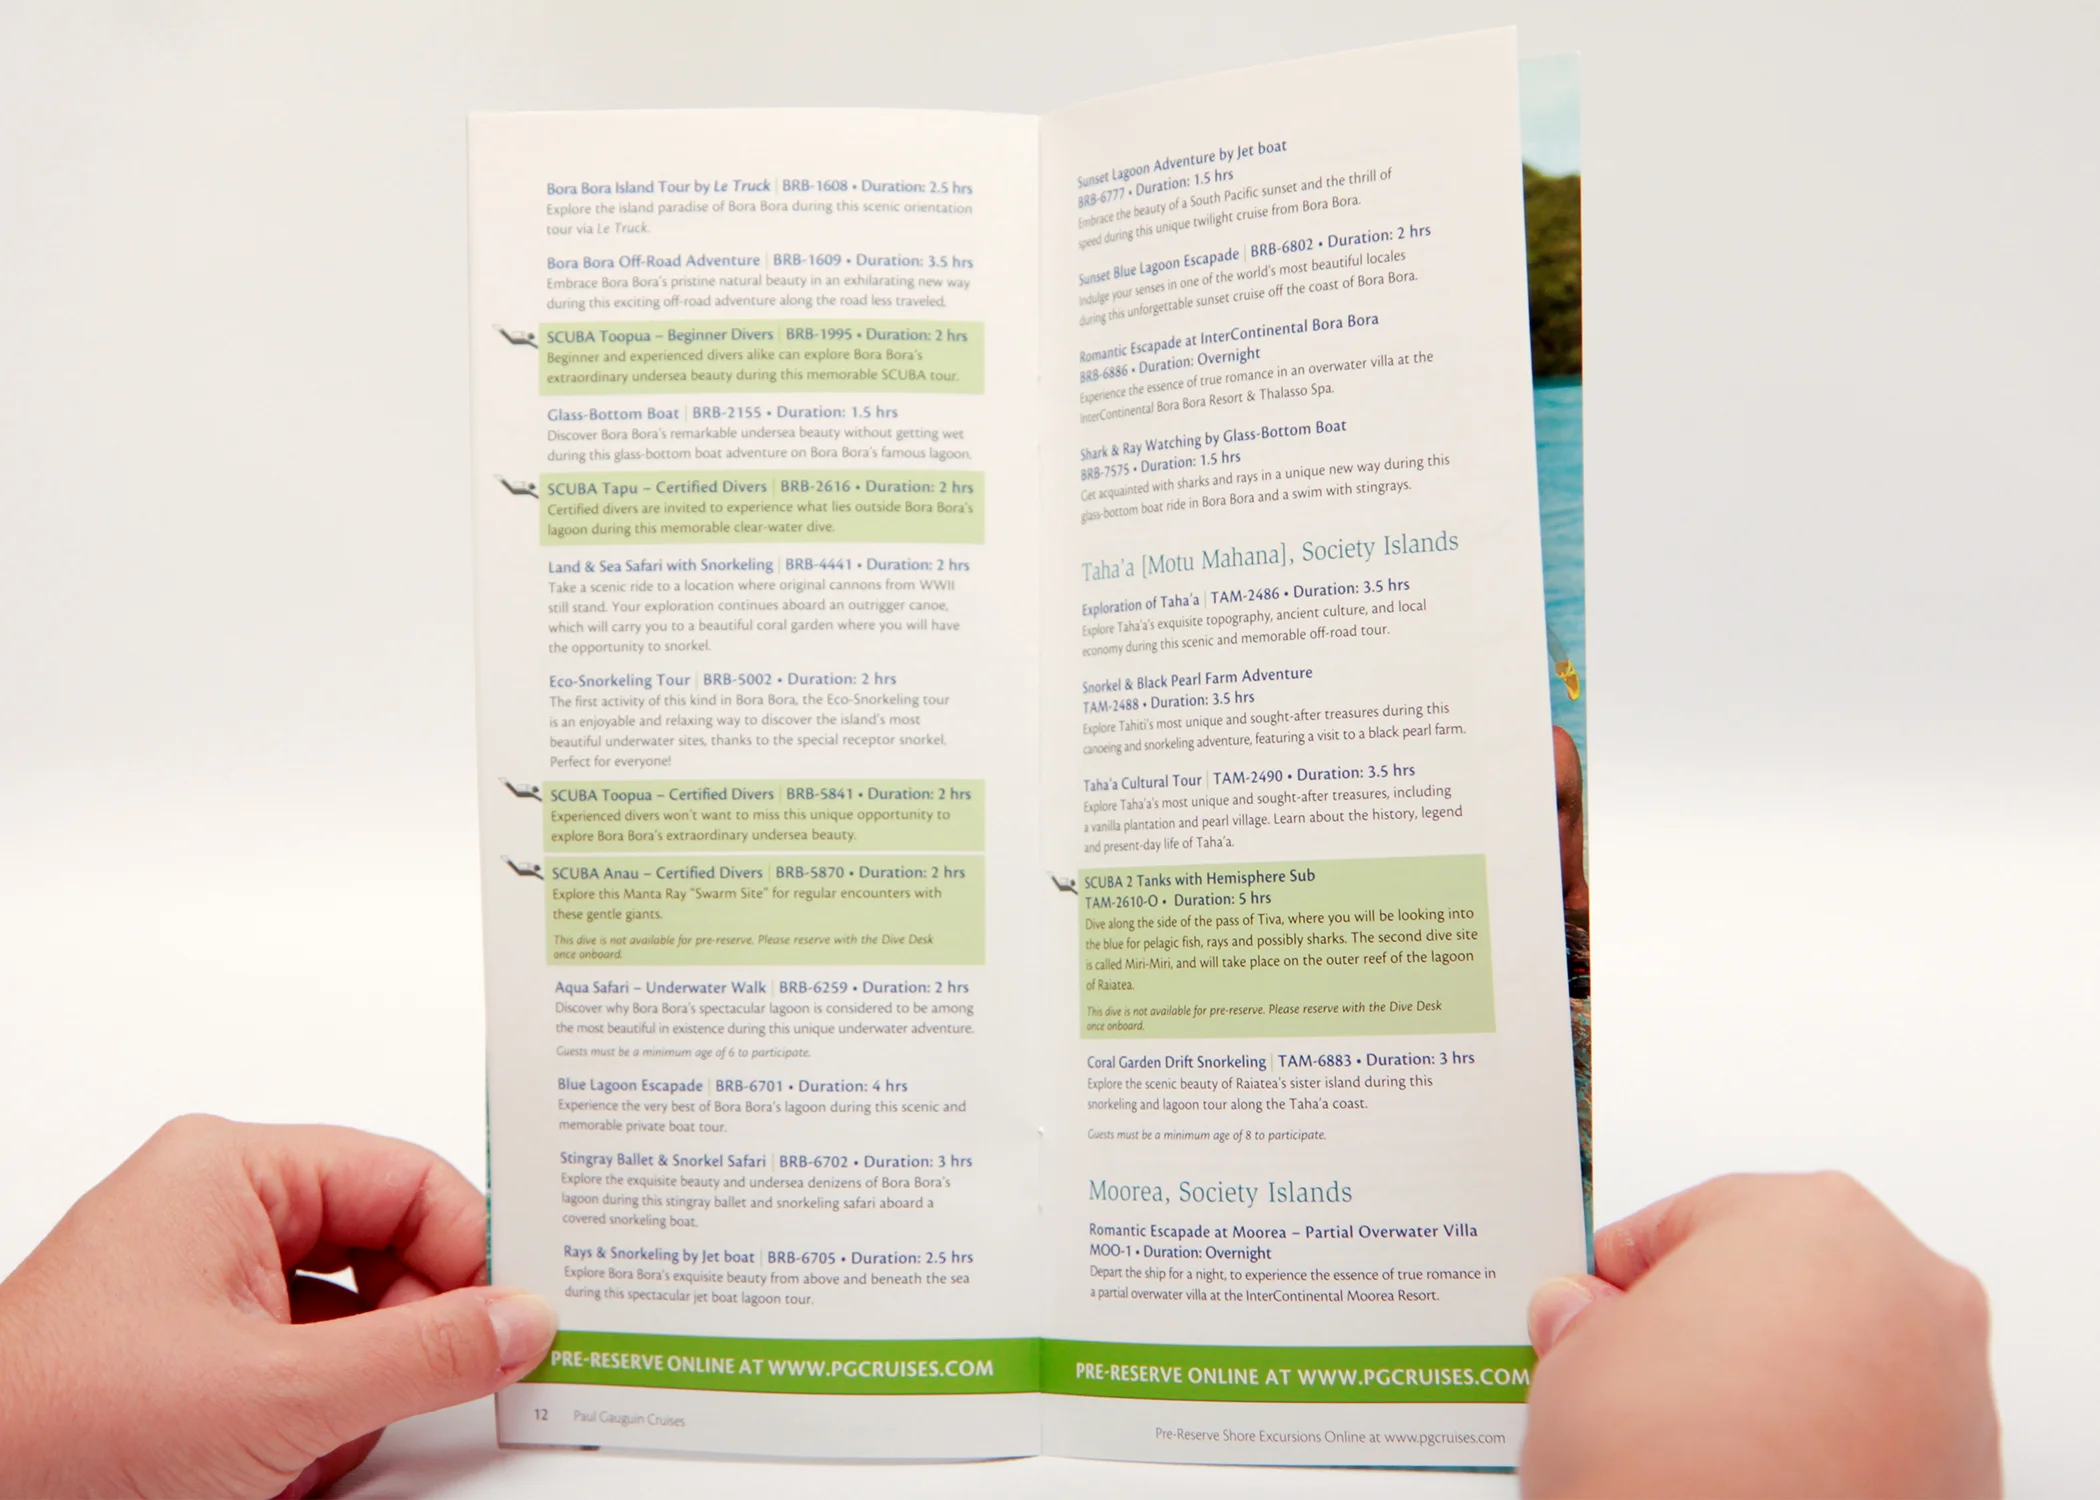 Bora Bora Island Tour by Le Truck | BRB-1608 • Duration: 2.5 hrs
Explore the island paradise of Bora Bora during this scenic orientation
tour via Le Truck.
Bora Bora Off-Road Adventure | BRB-1609 • Duration: 3.5 hrs
Embrace Bora Bora's pristine natural beauty in an exhilarating new way
during this exciting off-road adventure along the road less traveled.
SCUBA Toopua – Beginner Divers | BRB-1995 • Duration: 2 hrs
Beginner and experienced divers alike can explore Bora Bora's
extraordinary undersea beauty during this memorable SCUBA tour.
Glass-Bottom Boat | BRB-2155 • Duration: 1.5 hrs
Discover Bora Bora's remarkable undersea beauty without getting wet
during this glass-bottom boat adventure on Bora Bora's famous lagoon.
SCUBA Tapu – Certified Divers | BRB-2616 • Duration: 2 hrs
Certified divers are invited to experience what lies outside Bora Bora's
lagoon during this memorable clear-water dive.
Land & Sea Safari with Snorkeling | BRB-4441 • Duration: 2 hrs
Take a scenic ride to a location where original cannons from WWII
still stand. Your exploration continues aboard an outrigger canoe,
which will carry you to a beautiful coral garden where you will have
the opportunity to snorkel.
Eco-Snorkeling Tour | BRB-5002 • Duration: 2 hrs
The first activity of this kind in Bora Bora, the Eco-Snorkeling tour
is an enjoyable and relaxing way to discover the island's most
beautiful underwater sites, thanks to the special receptor snorkel.
Perfect for everyone!
SCUBA Toopua – Certified Divers | BRB-5841 • Duration: 2 hrs
Experienced divers won't want to miss this unique opportunity to
explore Bora Bora's extraordinary undersea beauty.
SCUBA Anau – Certified Divers | BRB-5870 • Duration: 2 hrs
Explore this Manta Ray "Swarm Site" for regular encounters with
these gentle giants.
This dive is not available for pre-reserve. Please reserve with the Dive Desk
once onboard.
Aqua Safari – Underwater Walk | BRB-6259 • Duration: 2 hrs
Discover why Bora Bora's spectacular lagoon is considered to be among
the most beautiful in existence during this unique underwater adventure.
Guests must be a minimum age of 6 to participate.
Blue Lagoon Escapade | BRB-6701 • Duration: 4 hrs
Experience the very best of Bora Bora's lagoon during this scenic and
memorable private boat tour.
Stingray Ballet & Snorkel Safari | BRB-6702 • Duration: 3 hrs
Explore the exquisite beauty and undersea denizens of Bora Bora's
lagoon during this stingray ballet and snorkeling safari aboard a
covered snorkeling boat.
Rays & Snorkeling by Jet boat | BRB-6705 • Duration: 2.5 hrs
Explore Bora Bora's exquisite beauty from above and beneath the sea
during this spectacular jet boat lagoon tour.
PRE-RESERVE ONLINE AT WWW.PGCRUISES.COM
12 Paul Gauguin Cruises
Sunset Lagoon Adventure by Jet boat
BRB-6777 • Duration: 1.5 hrs
Embrace the beauty of a South Pacific sunset and the thrill of
speed during this unique twilight cruise from Bora Bora.
Sunset Blue Lagoon Escapade | BRB-6802 • Duration: 2 hrs
Indulge your senses in one of the world's most beautiful locales
during this unforgettable sunset cruise off the coast of Bora Bora.
Romantic Escapade at InterContinental Bora Bora
BRB-6886 • Duration: Overnight
Experience the essence of true romance in an overwater villa at the
InterContinental Bora Bora Resort & Thalasso Spa.
Shark & Ray Watching by Glass-Bottom Boat
BRB-7575 • Duration: 1.5 hrs
Get acquainted with sharks and rays in a unique new way during this
glass-bottom boat ride in Bora Bora and a swim with stingrays.
Taha'a [Motu Mahana], Society Islands
Exploration of Taha'a | TAM-2486 • Duration: 3.5 hrs
Explore Taha'a's exquisite topography, ancient culture, and local
economy during this scenic and memorable off-road tour.
Snorkel & Black Pearl Farm Adventure
TAM-2488 • Duration: 3.5 hrs
Explore Tahiti's most unique and sought-after treasures during this
canoeing and snorkeling adventure, featuring a visit to a black pearl farm.
Taha'a Cultural Tour | TAM-2490 • Duration: 3.5 hrs
Explore Taha'a's most unique and sought-after treasures, including
a vanilla plantation and pearl village. Learn about the history, legend
and present-day life of Taha'a.
SCUBA 2 Tanks with Hemisphere Sub
TAM-2610-O • Duration: 5 hrs
Dive along the side of the pass of Tiva, where you will be looking into
the blue for pelagic fish, rays and possibly sharks. The second dive site
is called Miri-Miri, and will take place on the outer reef of the lagoon
of Raiatea.
This dive is not available for pre-reserve. Please reserve with the Dive Desk
once onboard.
Coral Garden Drift Snorkeling | TAM-6883 • Duration: 3 hrs
Explore the scenic beauty of Raiatea's sister island during this
snorkeling and lagoon tour along the Taha'a coast.
Guests must be a minimum age of 8 to participate.
Moorea, Society Islands
Romantic Escapade at Moorea – Partial Overwater Villa
MOO-1 • Duration: Overnight
Depart the ship for a night, to experience the essence of true romance in
a partial overwater villa at the InterContinental Moorea Resort.
PRE-RESERVE ONLINE AT WWW.PGCRUISES.COM
Pre-Reserve Shore Excursions Online at www.pgcruises.com